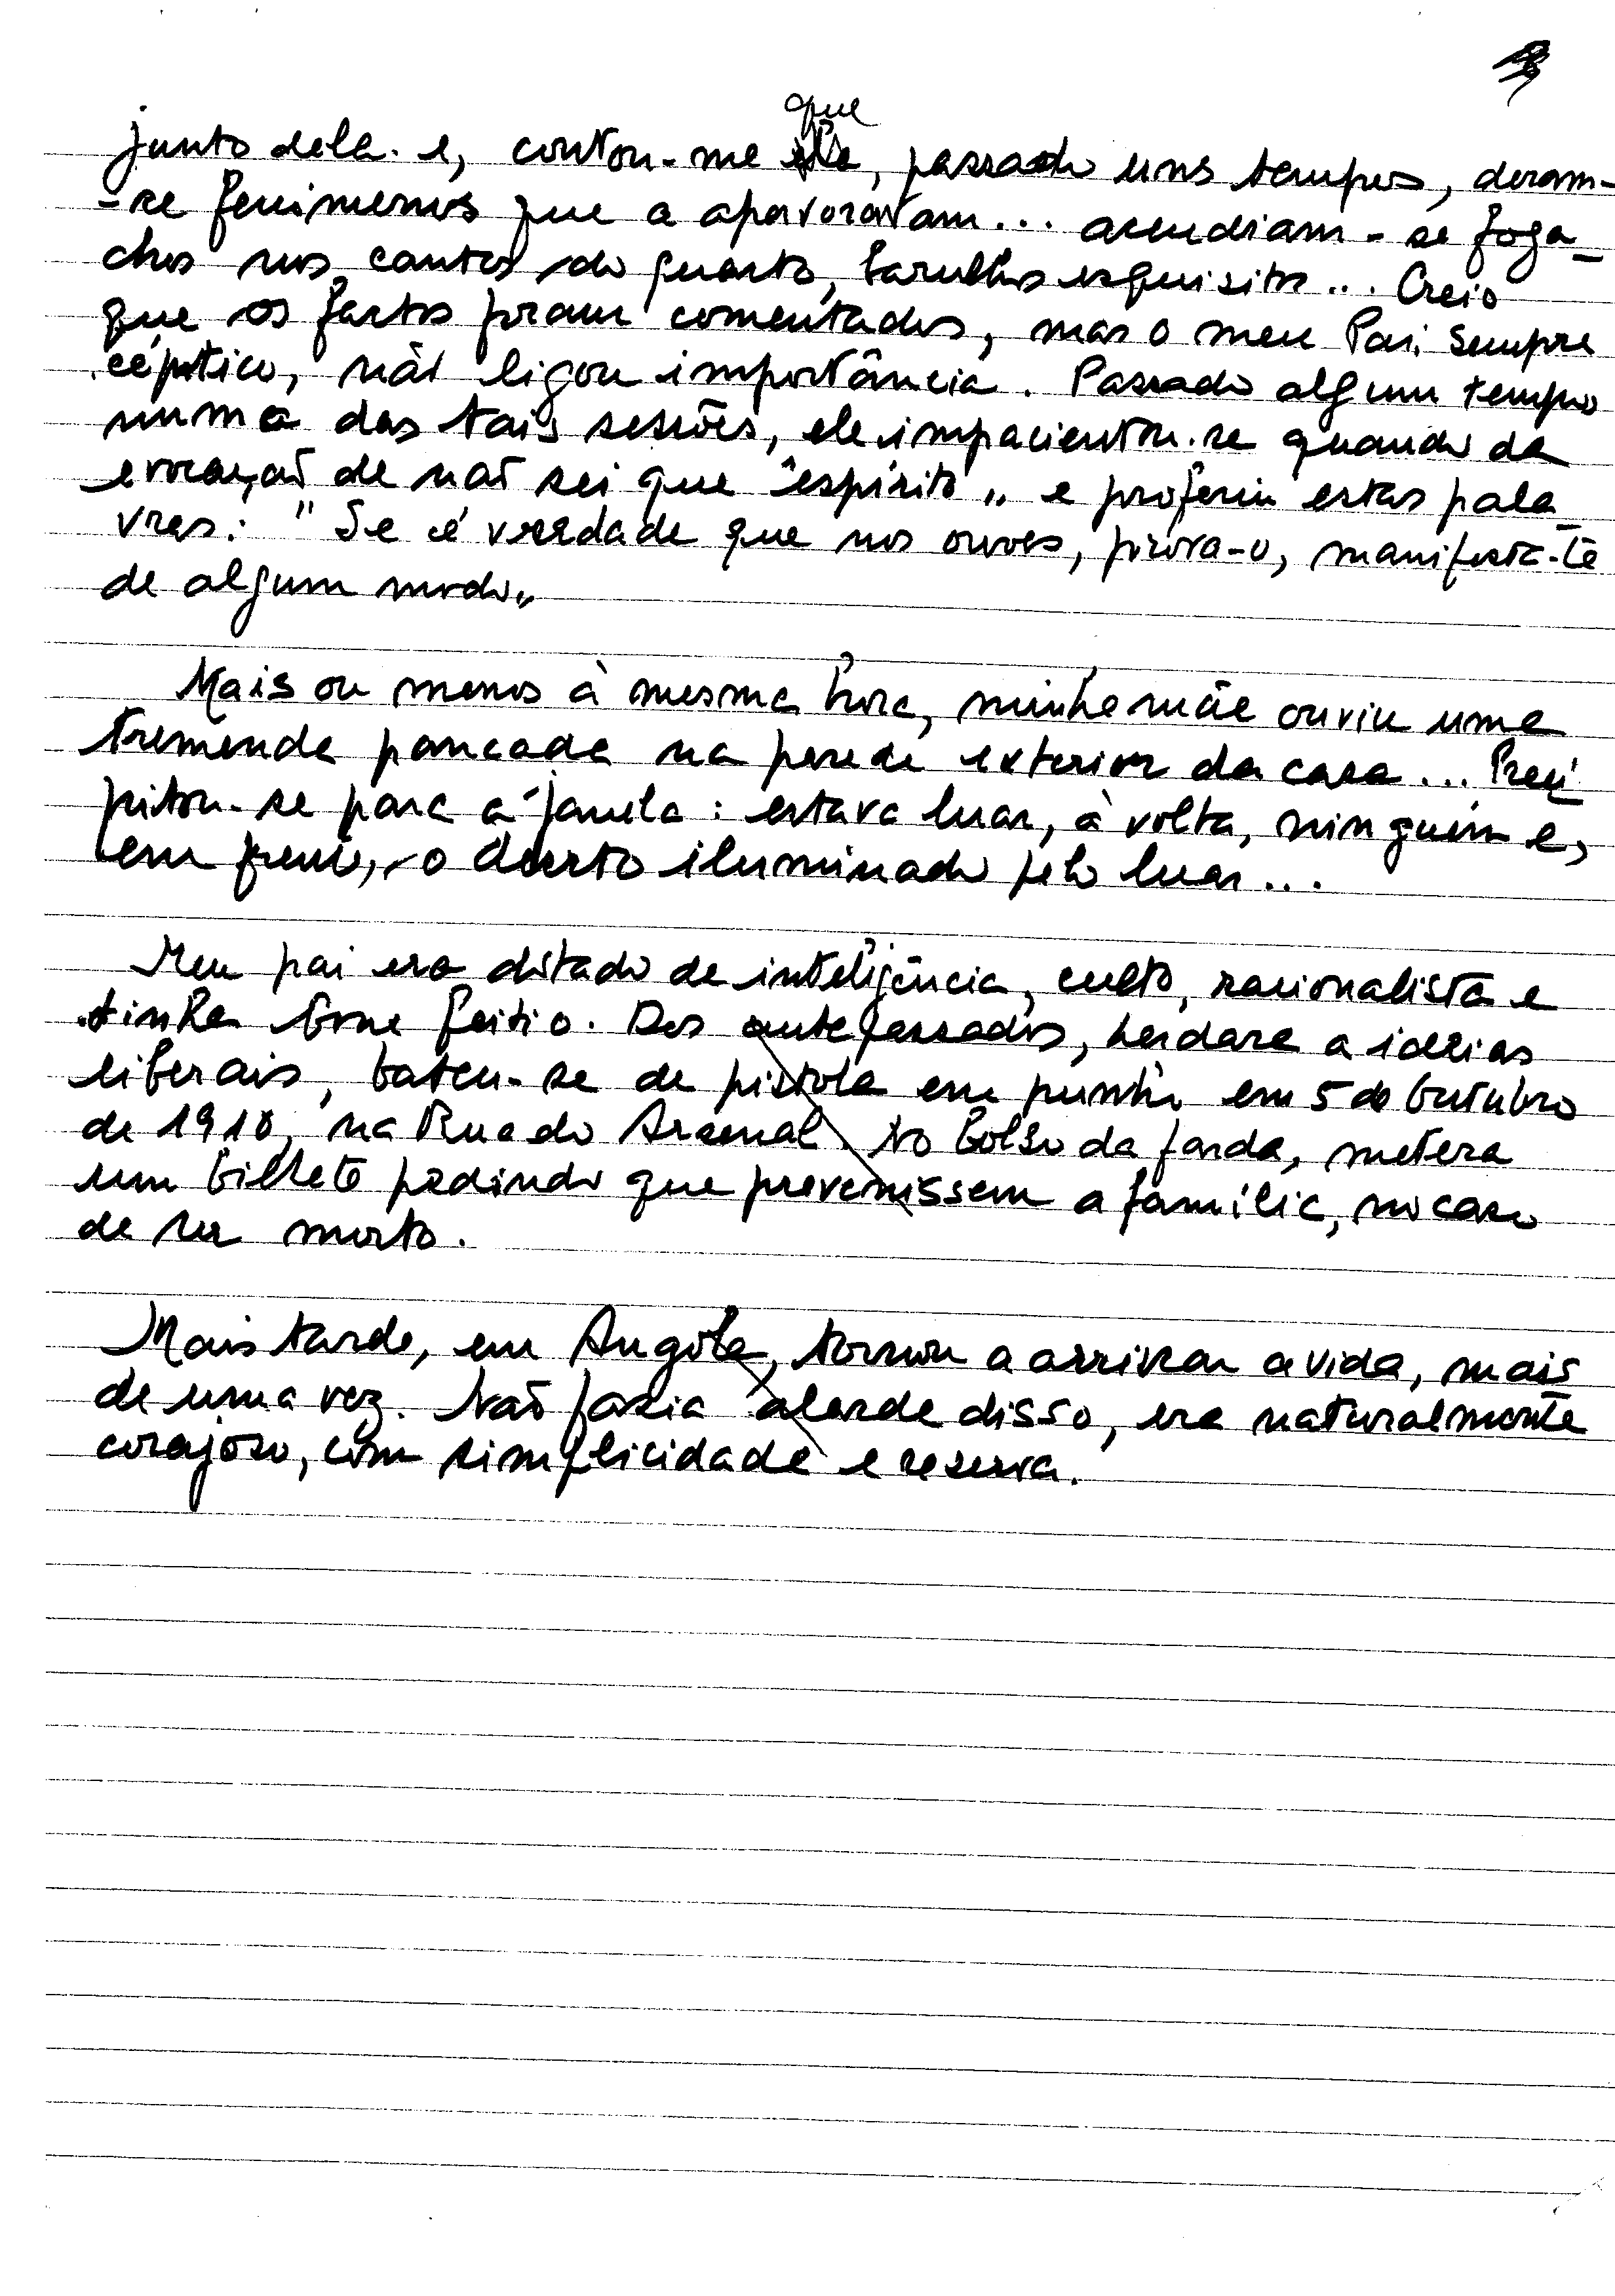 que
junto dela. e, contou-me, passado uns tempos, deram-
-se fenómenos que a apavoravam... acendiam-se foga-
chos nos cantos do quarto, barulhos esquisitos... Creio
que os factos foram comentados, mas o meu Pai, sempre
céptico, não ligou importância. Passado algum tempo
numa das tais sessões, ele impacientou-se quando da
evocação de não sei que "espírito" e proferiu estas pala-
vras: "Se é verdade que nos ouves, prova-o, manifesta-te
de algum modo"
Mais ou menos à mesma hora, minha mãe ouviu uma
tremenda pancada na parede exterior da casa... Preci
pitou-se para a janela: estava luar, à volta, ninguém e,
em frente, o deserto iluminado pelo luar...
Meu pai era dotado de inteligência, culto, racionalista e
tinha bom feitio. Dos antepassados, herdara a ideias
liberais, bateu-se de pistola em punho em 5 de Outubro
de 1910, na Rua do Arsenal. No bolso da farda, metera
um bilhete pedindo que prevenissem a família, no caso
de ser morto.
Mais tarde, em Angola, tornou a arriscar a vida, mais
de uma vez. Não fazia alarde disso, era naturalmente
corajoso, com simplicidade e reserva.